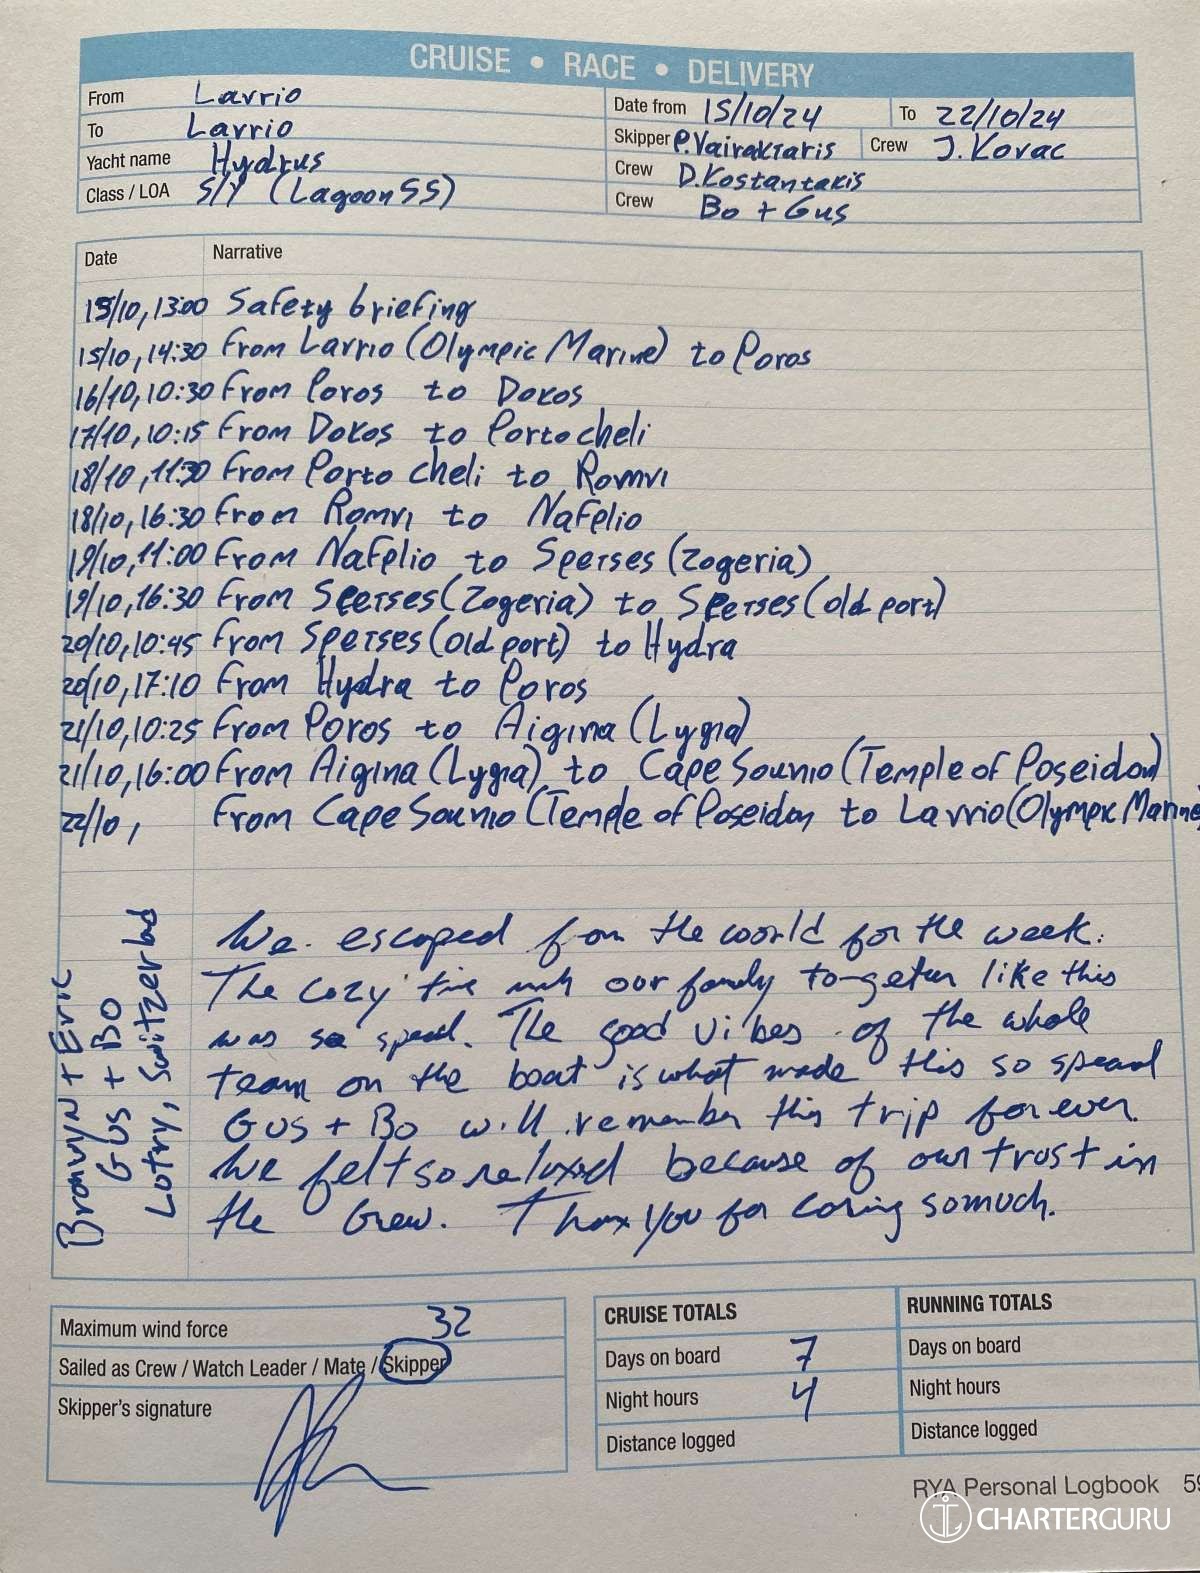 CRUISE • RACE • DELIVERY
From Lavrio
To Lavrio
Yacht name Hydrus
Class / LOA S/Y (Lagoon 55)
Date from 15/10/24 To 22/10/24
Skipper P.Vairaktaris Crew J.Kovac
Crew D.Kostantakis
Crew Bo + Gus
Date Narrative
15/10, 13:00 Safety briefing
15/10, 14:30 From Lavrio (Olympic Marine) to Poros
16/10, 10:30 From Poros to Dokos
17/10, 10:15 From Dokos to Portocheli
18/10, 11:30 From Porto cheli to Romvi
18/10, 16:30 From Romvi to Nafplio
19/10, 11:00 From Nafplio to Spetses (Zogeria)
19/10, 16:30 From Spetses (Zogeria) to Spetses (old port)
20/10, 10:45 From Spetses (old port) to Hydra
20/10, 17:10 From Hydra to Poros
21/10, 10:25 From Poros to Aigina (Lygia)
21/10, 16:00 From Aigina (Lygia) to Cape Sounio (Temple of Poseidon)
22/10, From Cape Sounio (Temple of Poseidon to Lavrio (Olympic Marine
We escaped from the world for the week.
The cozy time with our family together like this
was so special. The good vibes of the whole
team on the boat is what made this so special
Gus + Bo will remember this trip forever.
We felt so relaxed because of our trust in
the Crew. Thank you for caring so much.
Bronwyn + Eric
Gus + Bo
Switzerland
Maximum wind force 32
Sailed as Crew / Watch Leader / Mate / Skipper
Skipper's signature
CRUISE TOTALS
Days on board 7
Night hours 4
Distance logged
RUNNING TOTALS
Days on board
Night hours
Distance logged
RYA Personal Logbook 59
CHARTERGURU